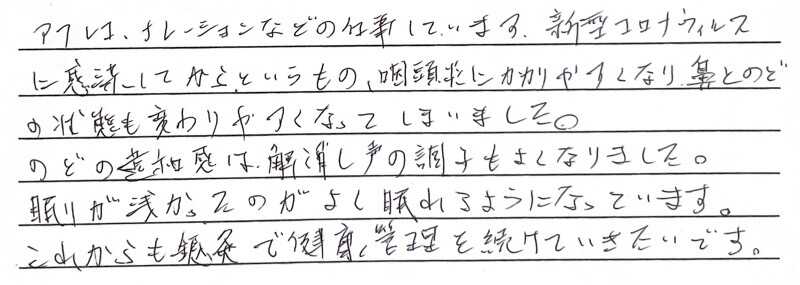 アフレコ、ナレーションなどの仕事しています。新型コロナウィルス
に感染してからというもの、咽頭炎にかかりやすくなり、鼻とのど
の状態も変わりやすくなってしまいました。
のどの違和感は、解消し声の調子もよくなりました。
眠りが浅かったのがよく眠れるようになっています。
これからも鍼灸で健康管理を続けていきたいです。